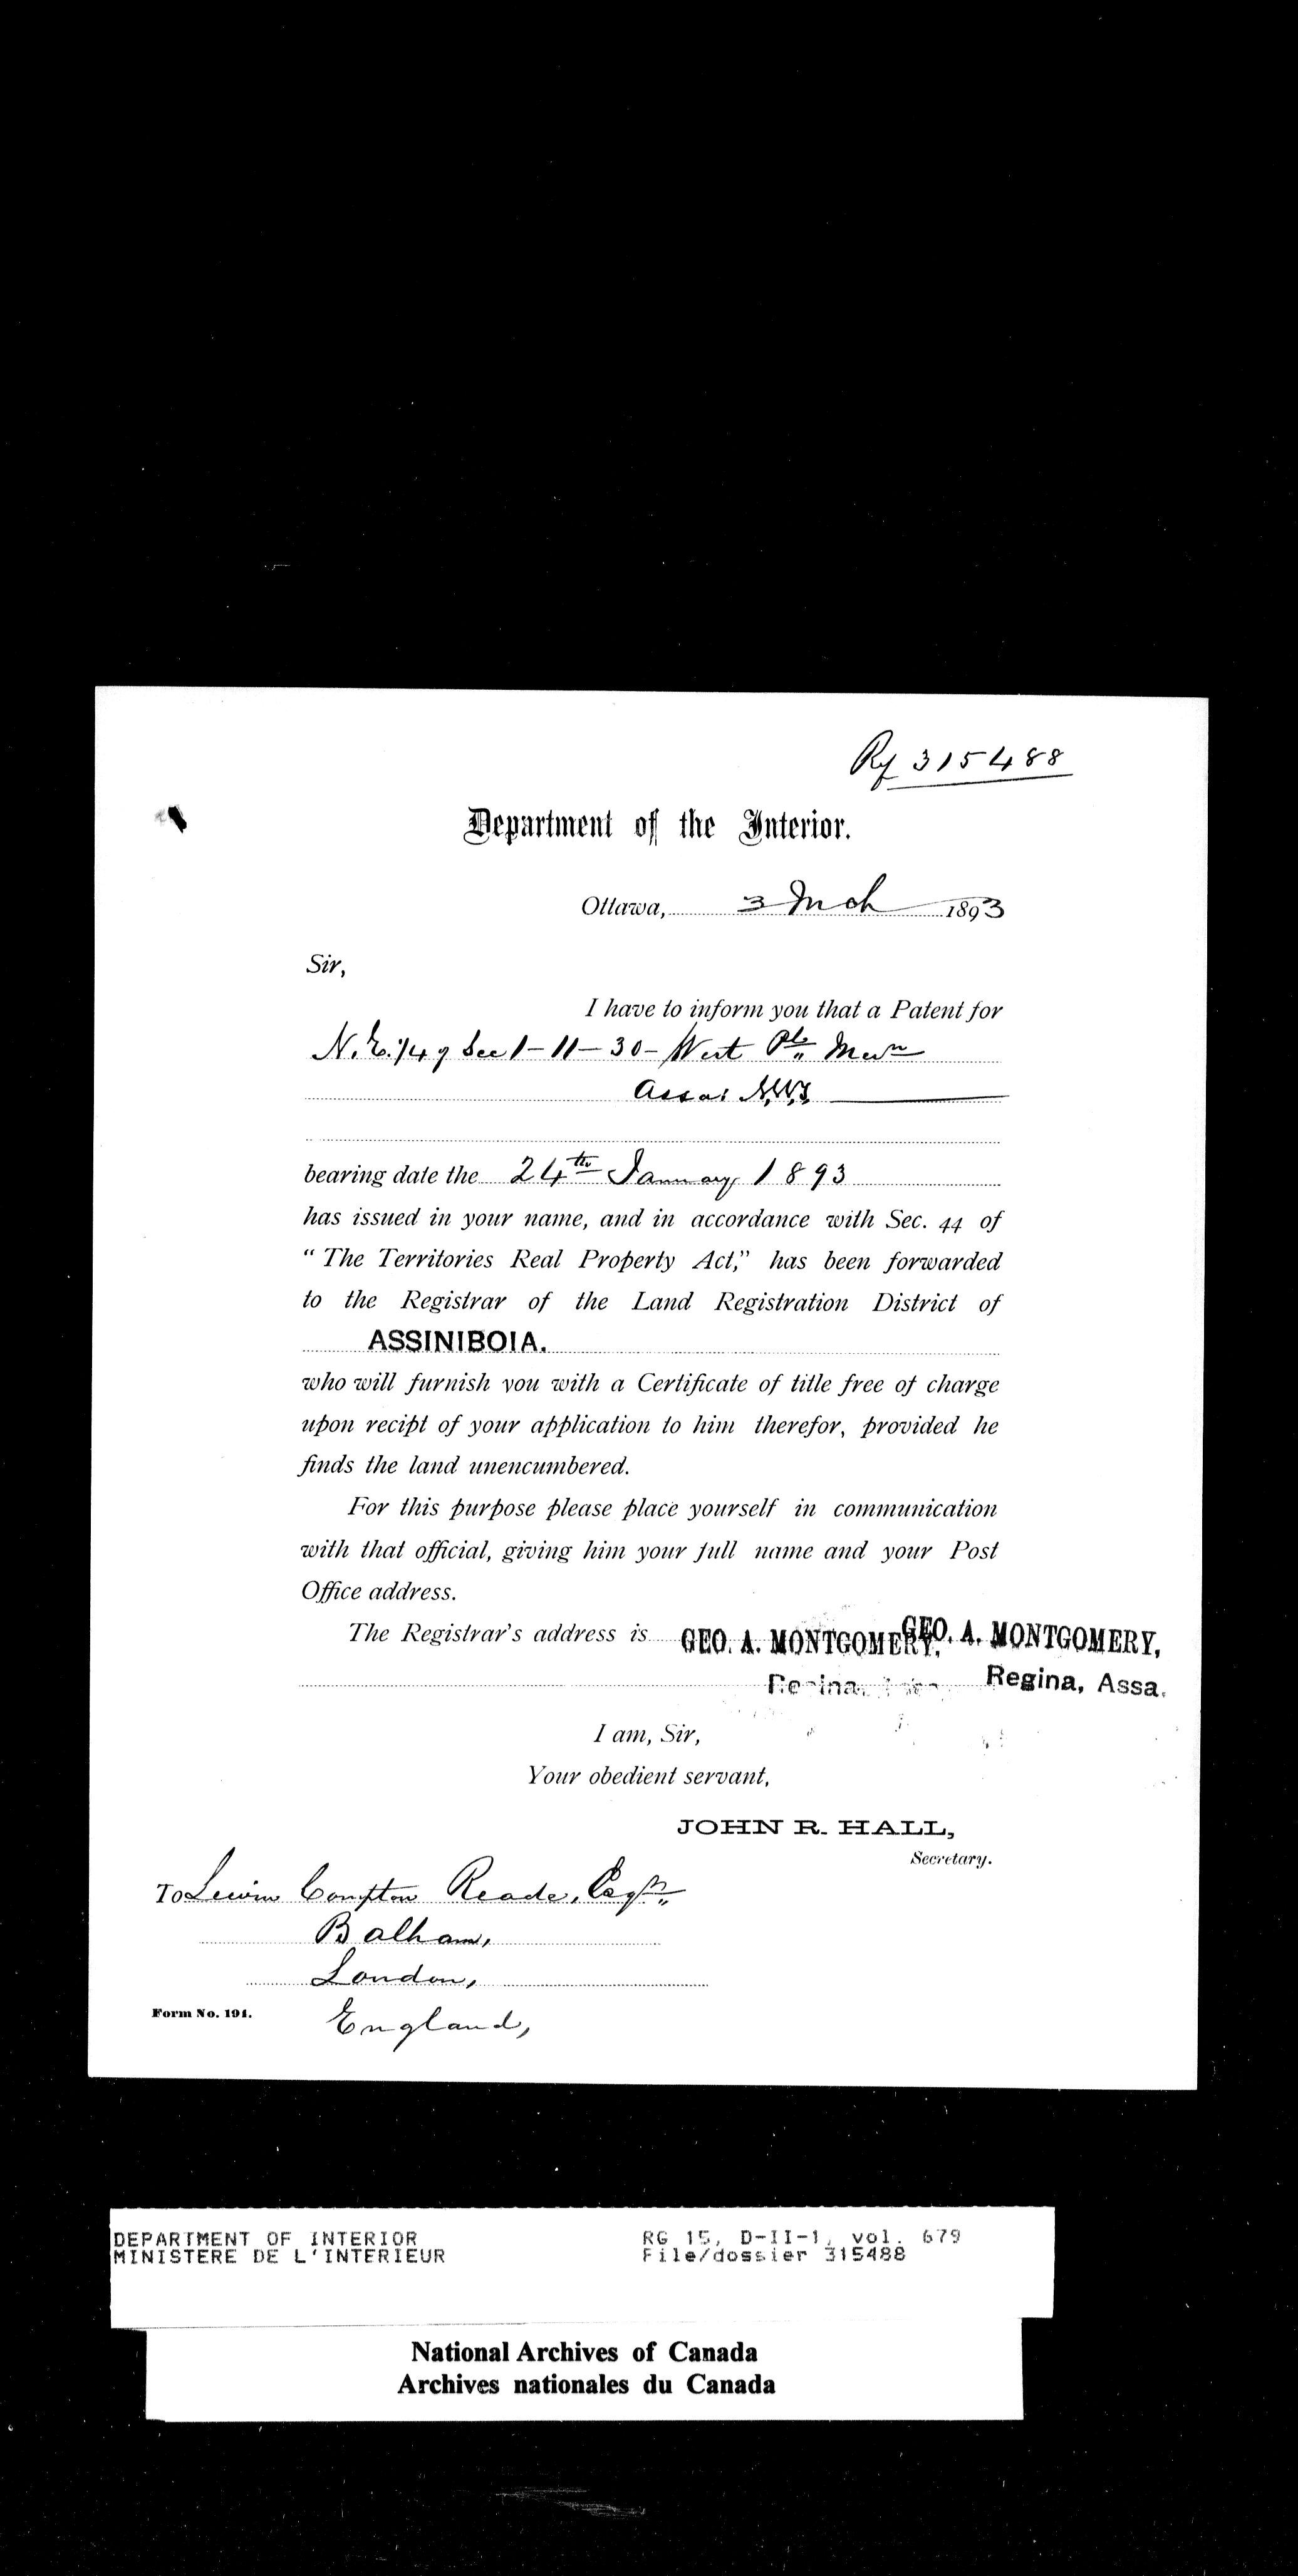 Rf 315488
Department of the Interior.
Ottawa, 3 Mch 1893
Sir,
I have to inform you that a Patent for
N.E. 1/4 of Sec 1-11-30- West Pl. Mern
Assa. N.W.T.
bearing date the 24th January 1893
has issued in your name, and in accordance with Sec. 44 of
“The Territories Real Property Act,” has been forwarded
to the Registrar of the Land Registration District of
ASSINIBOIA.
who will furnish you with a Certificate of title free of charge
upon recipt of your application to him therefor, provided he
finds the land unencumbered.
For this purpose please place yourself in communication
with that official, giving him your full name and your Post
Office address.
The Registrar's address is GEO. A. MONTGOMERY, GEO. A. MONTGOMERY,
Regina, Regina, Assa.
I am, Sir,
Your obedient servant,
JOHN R. HALL,
Secretary.
To Lewin Compton Reade, Esqr.
Balham,
London,
England,
Form No. 191.
DEPARTMENT OF INTERIOR RG 15, D-II-1, vol. 679
MINISTERE DE L'INTERIEUR File/dossier 315488
National Archives of Canada
Archives nationales du Canada